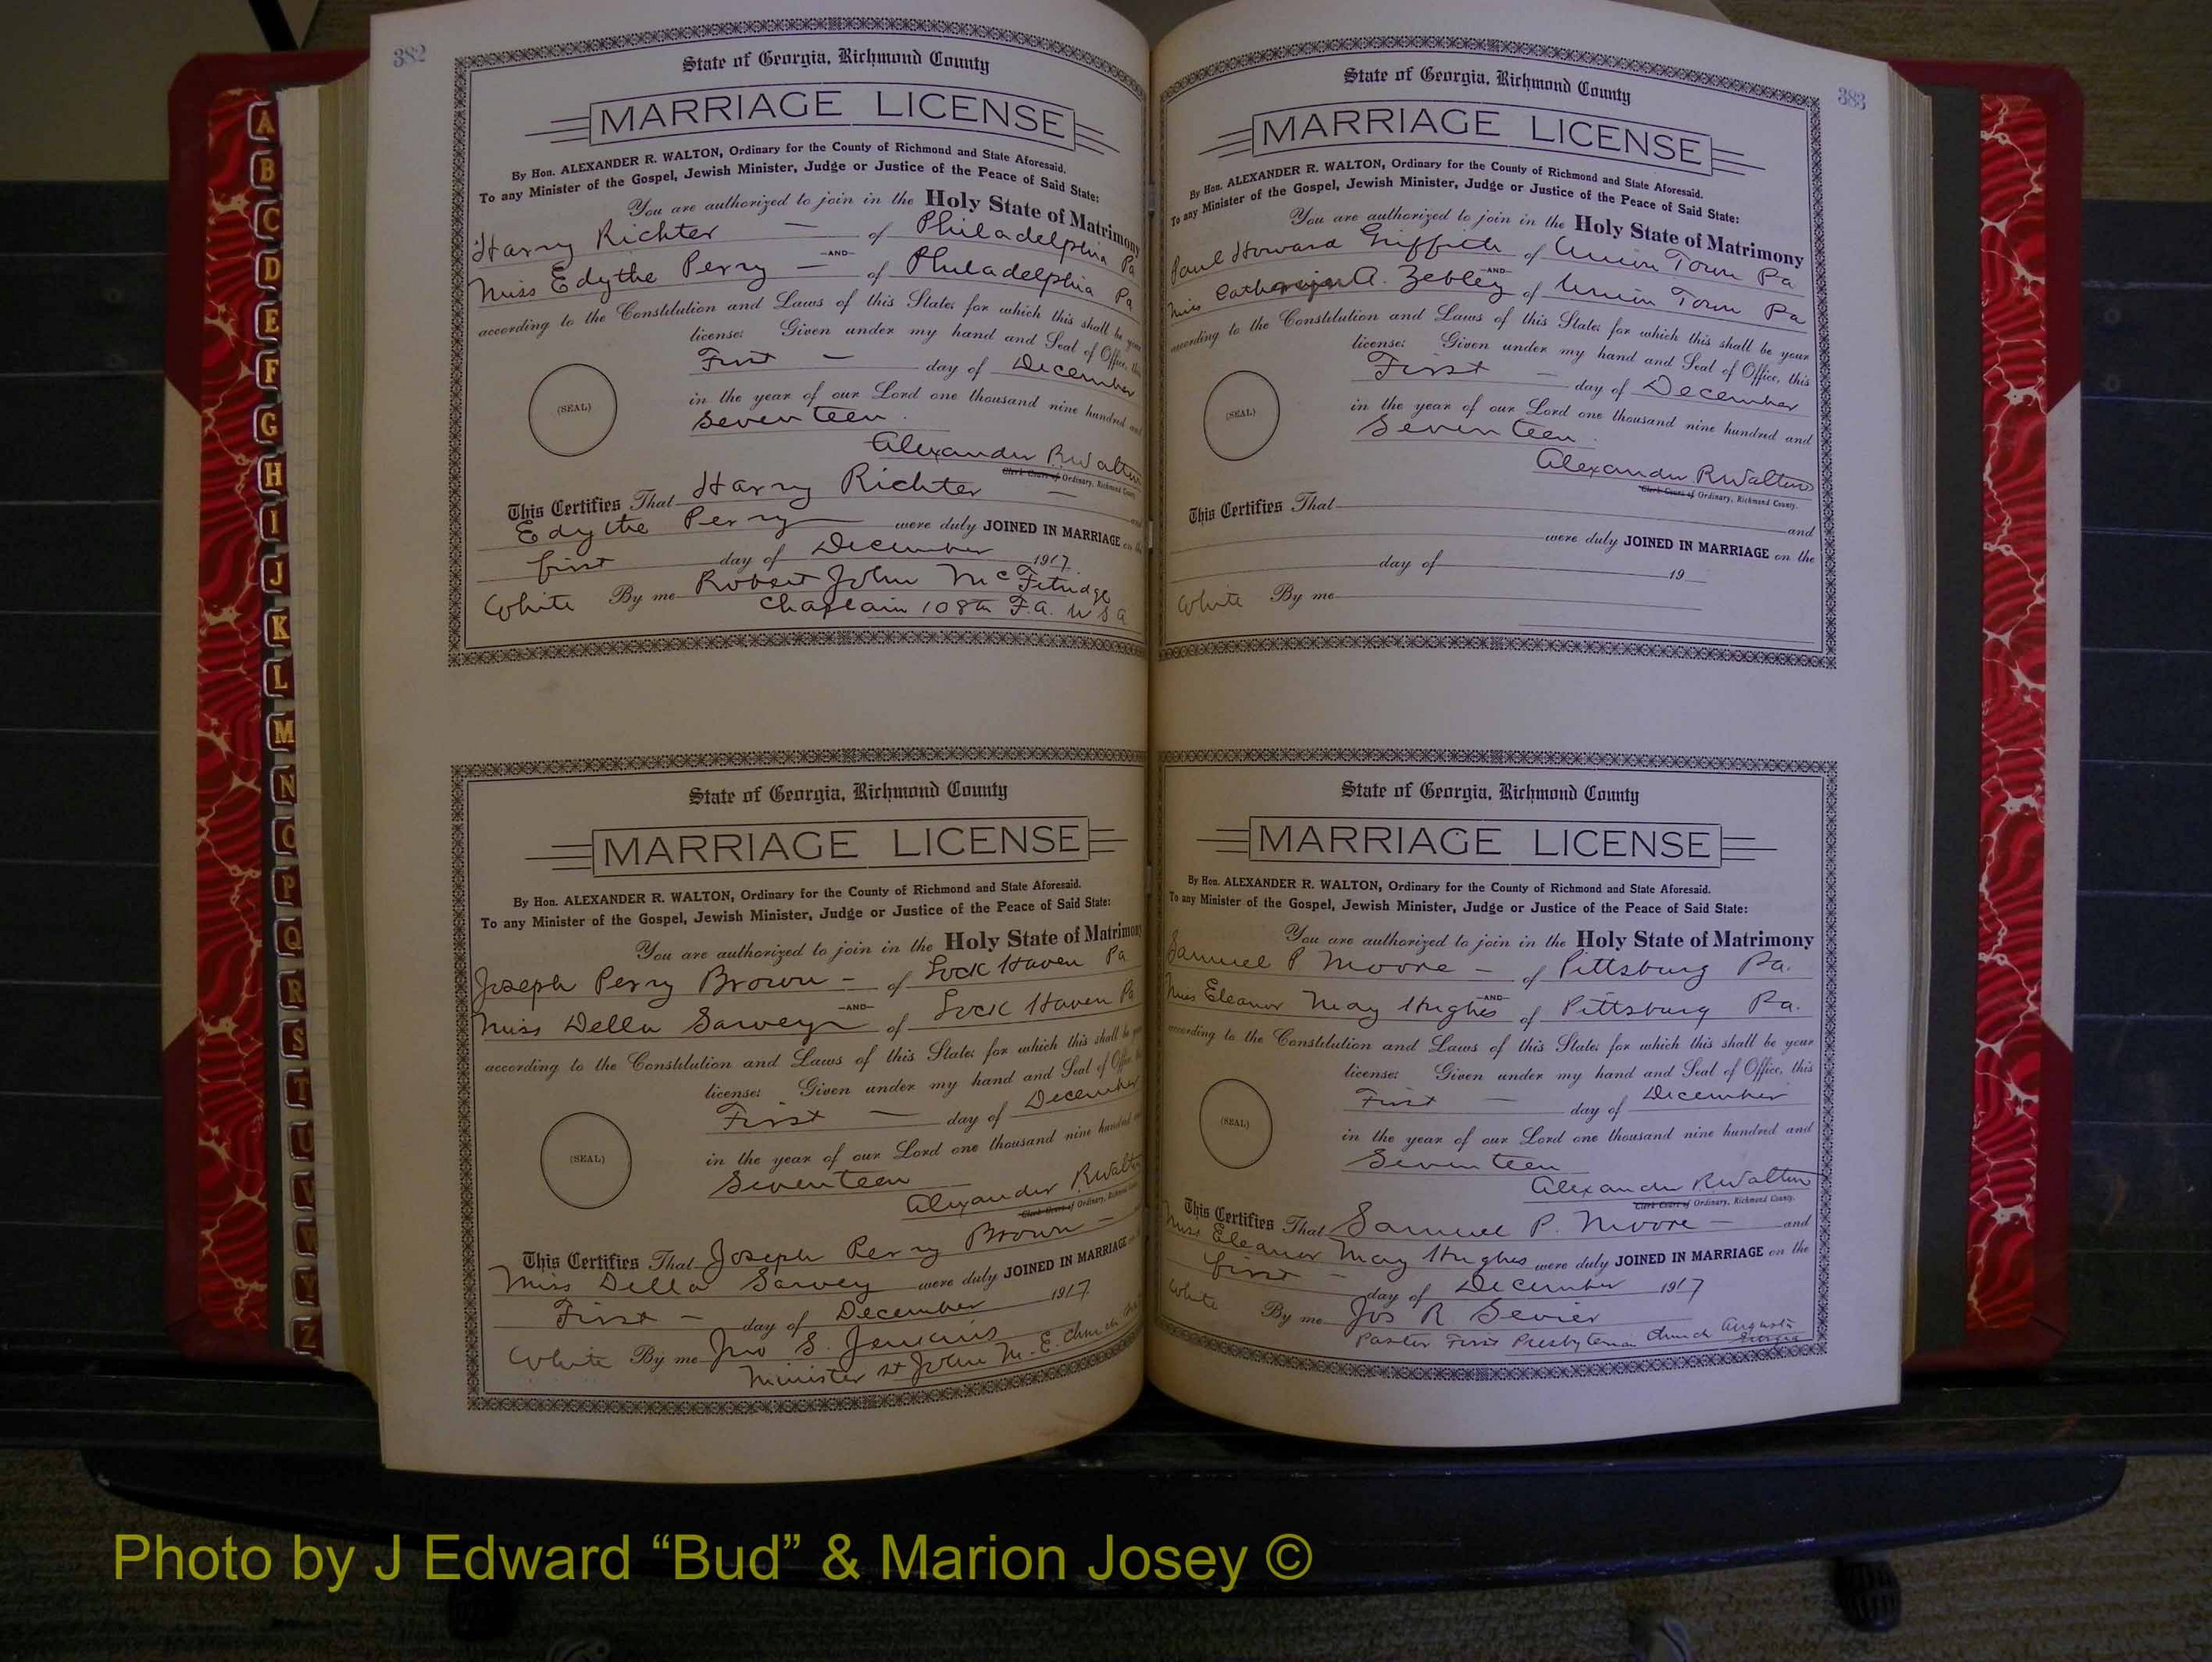 382
State of Georgia, Richmond County
MARRIAGE LICENSE
By Hon. ALEXANDER R. WALTON, Ordinary for the County of Richmond and State Aforesaid.
To any Minister of the Gospel, Jewish Minister, Judge or Justice of the Peace of Said State:
You are authorized to join in the Holy State of Matrimony
Harry Richter — of Philadelphia Pa
—AND—
Miss Edythe Perry — of Philadelphia Pa
according to the Constitution and Laws of this State; for which this shall be your
license: Given under my hand and Seal of Office, this
First — day of December
in the year of our Lord one thousand nine hundred and
Seventeen
(SEAL)
Alexander R Walton
Clerk Court of Ordinary, Richmond County.
This Certifies That Harry Richter — and
Edythe Perry were duly JOINED IN MARRIAGE on the
first day of December 1917
White By me Robert John McFetridge
Chaplain 108th F.A. U S A
State of Georgia, Richmond County
MARRIAGE LICENSE
By Hon. ALEXANDER R. WALTON, Ordinary for the County of Richmond and State Aforesaid.
To any Minister of the Gospel, Jewish Minister, Judge or Justice of the Peace of Said State:
You are authorized to join in the Holy State of Matrimony
Joseph Perry Brown — of Lock Haven Pa
—AND—
Miss Della Sarvey of Lock Haven Pa
according to the Constitution and Laws of this State; for which this shall be your
license: Given under my hand and Seal of Office, this
First — day of December
in the year of our Lord one thousand nine hundred and
Seventeen
(SEAL)
Alexander R Walton
Clerk Court of Ordinary, Richmond County.
This Certifies That Joseph Perry Brown —
Miss Della Sarvey were duly JOINED IN MARRIAGE on the
First — day of December 1917
White By me Jno S. Jenkins
Minister St John M. E. Church
383
State of Georgia, Richmond County
MARRIAGE LICENSE
By Hon. ALEXANDER R. WALTON, Ordinary for the County of Richmond and State Aforesaid.
To any Minister of the Gospel, Jewish Minister, Judge or Justice of the Peace of Said State:
You are authorized to join in the Holy State of Matrimony
Paul Howard Griffith of Union Town Pa
—AND—
Miss Catharine A. Zebley of Union Town Pa
according to the Constitution and Laws of this State; for which this shall be your
license: Given under my hand and Seal of Office, this
First — day of December
in the year of our Lord one thousand nine hundred and
Seventeen
(SEAL)
Alexander R Walton
Clerk Court of Ordinary, Richmond County.
This Certifies That
and
were duly JOINED IN MARRIAGE on the
day of 19
White By me
State of Georgia, Richmond County
MARRIAGE LICENSE
By Hon. ALEXANDER R. WALTON, Ordinary for the County of Richmond and State Aforesaid.
To any Minister of the Gospel, Jewish Minister, Judge or Justice of the Peace of Said State:
You are authorized to join in the Holy State of Matrimony
Samuel P Moore — of Pittsburg Pa.
—AND—
Miss Eleanor May Hughes of Pittsburg Pa.
according to the Constitution and Laws of this State; for which this shall be your
license: Given under my hand and Seal of Office, this
First — day of December
in the year of our Lord one thousand nine hundred and
Seventeen
(SEAL)
Alexander R Walton
Clerk Court of Ordinary, Richmond County.
This Certifies That Samuel P. Moore — and
Miss Eleanor May Hughes were duly JOINED IN MARRIAGE on the
first — day of December 1917
White By me Jos R Sevier
Pastor First Presbyterian Church Augusta
Georgia
A
B
C
D
E
F
G
H
I
J
K
L
M
N
O
P
Q
R
S
T
U
V
W
Y
Z
Photo by J Edward “Bud” & Marion Josey ©